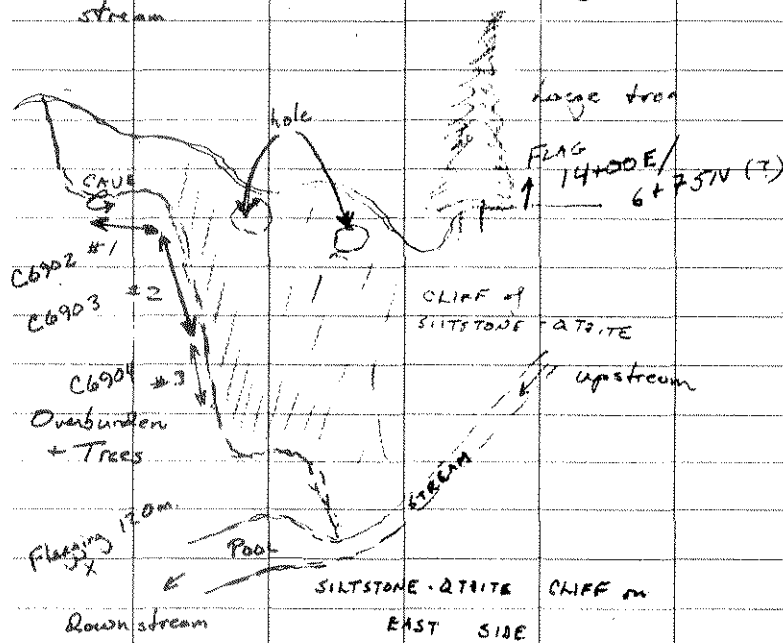 stream
hole
Large tree
FLAG
14+00E/
6+75N (?)
CAVE
C6902 #1
C6903 #2
CLIFF of
SILTSTONE - QTZITE
C6904 #3
upstream
Overburden
+ Trees
STREAM
Flagging 120m.
X
Pool
SILTSTONE - QTZITE CLIFF on
Downstream
EAST SIDE